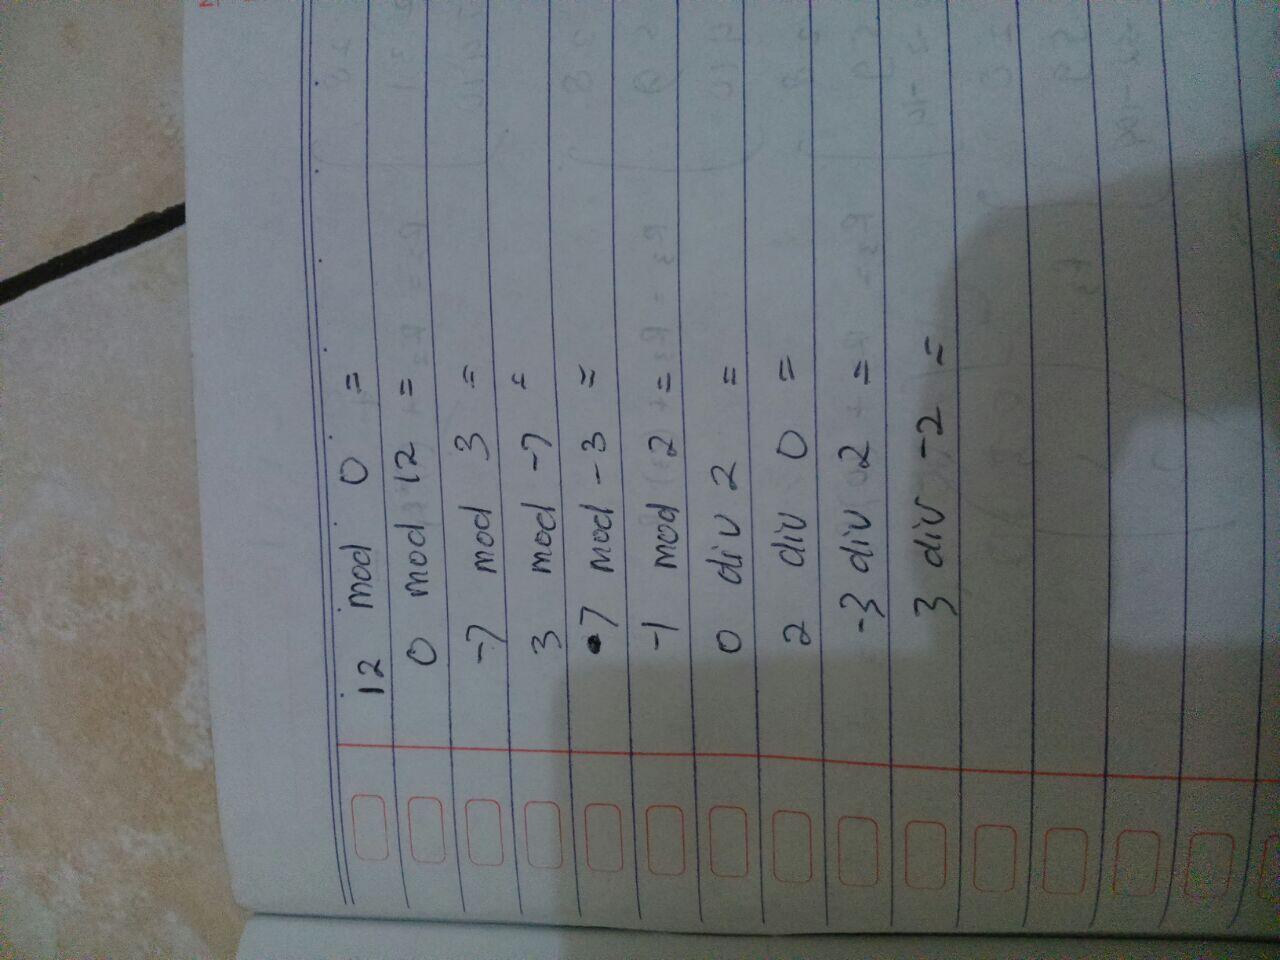 12 mod 0 =
0 mod 12 =
-7 mod 3 =
3 mod -7 =
7 mod -3 =
-1 mod 2 =
0 div 2 =
2 div 0 =
-3 div 2 =
3 div -2 =